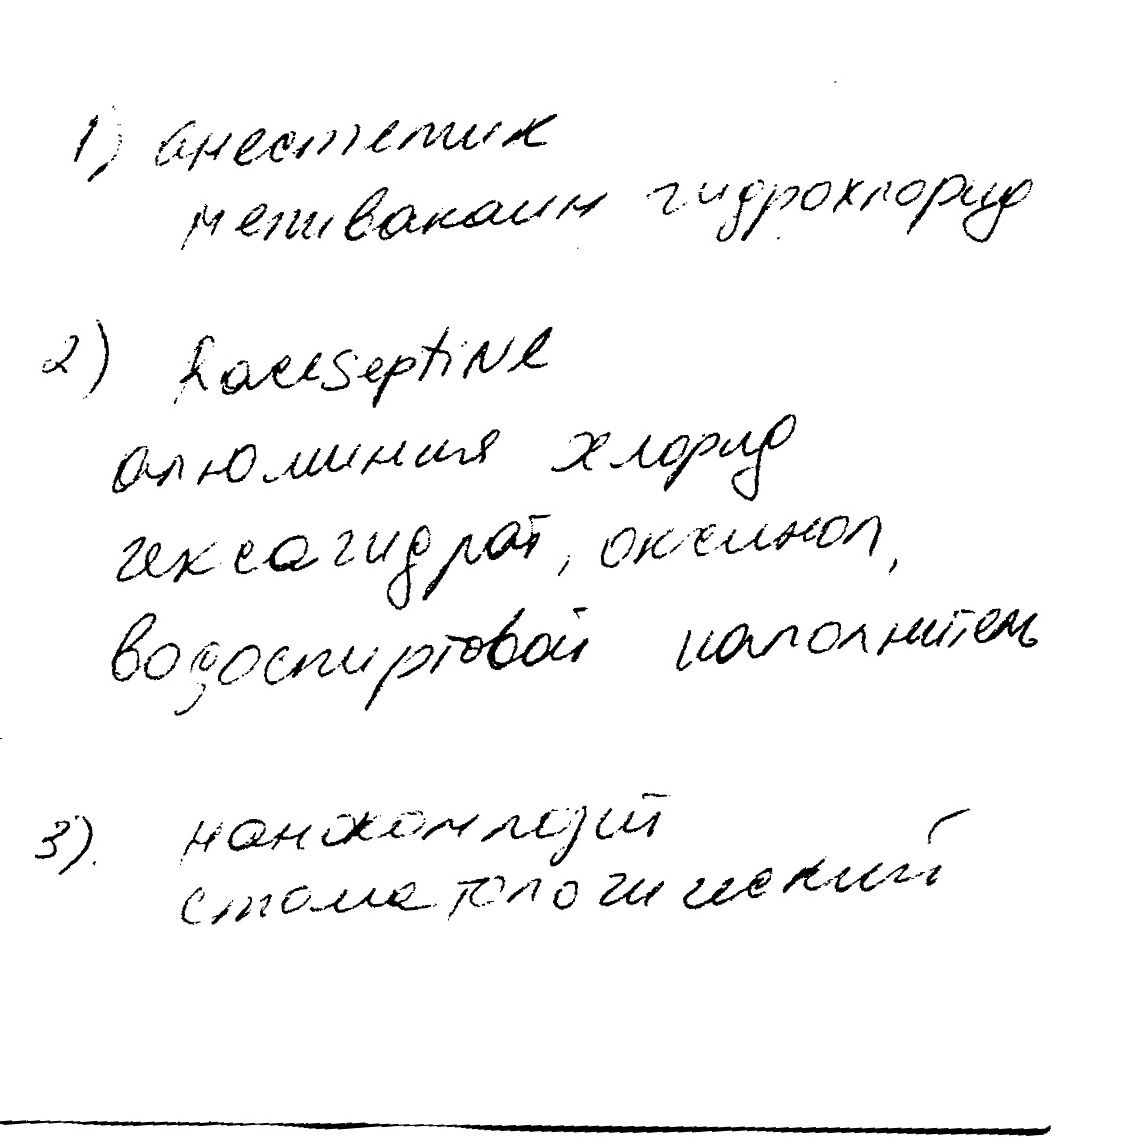 1) анестетик
мепивакаин гидрохлорид
2) Raceseptine
алюминия хлорид
гексагидрат, оксинол,
водоспиртовой наполнитель
3). нанокомпозит
стоматологический